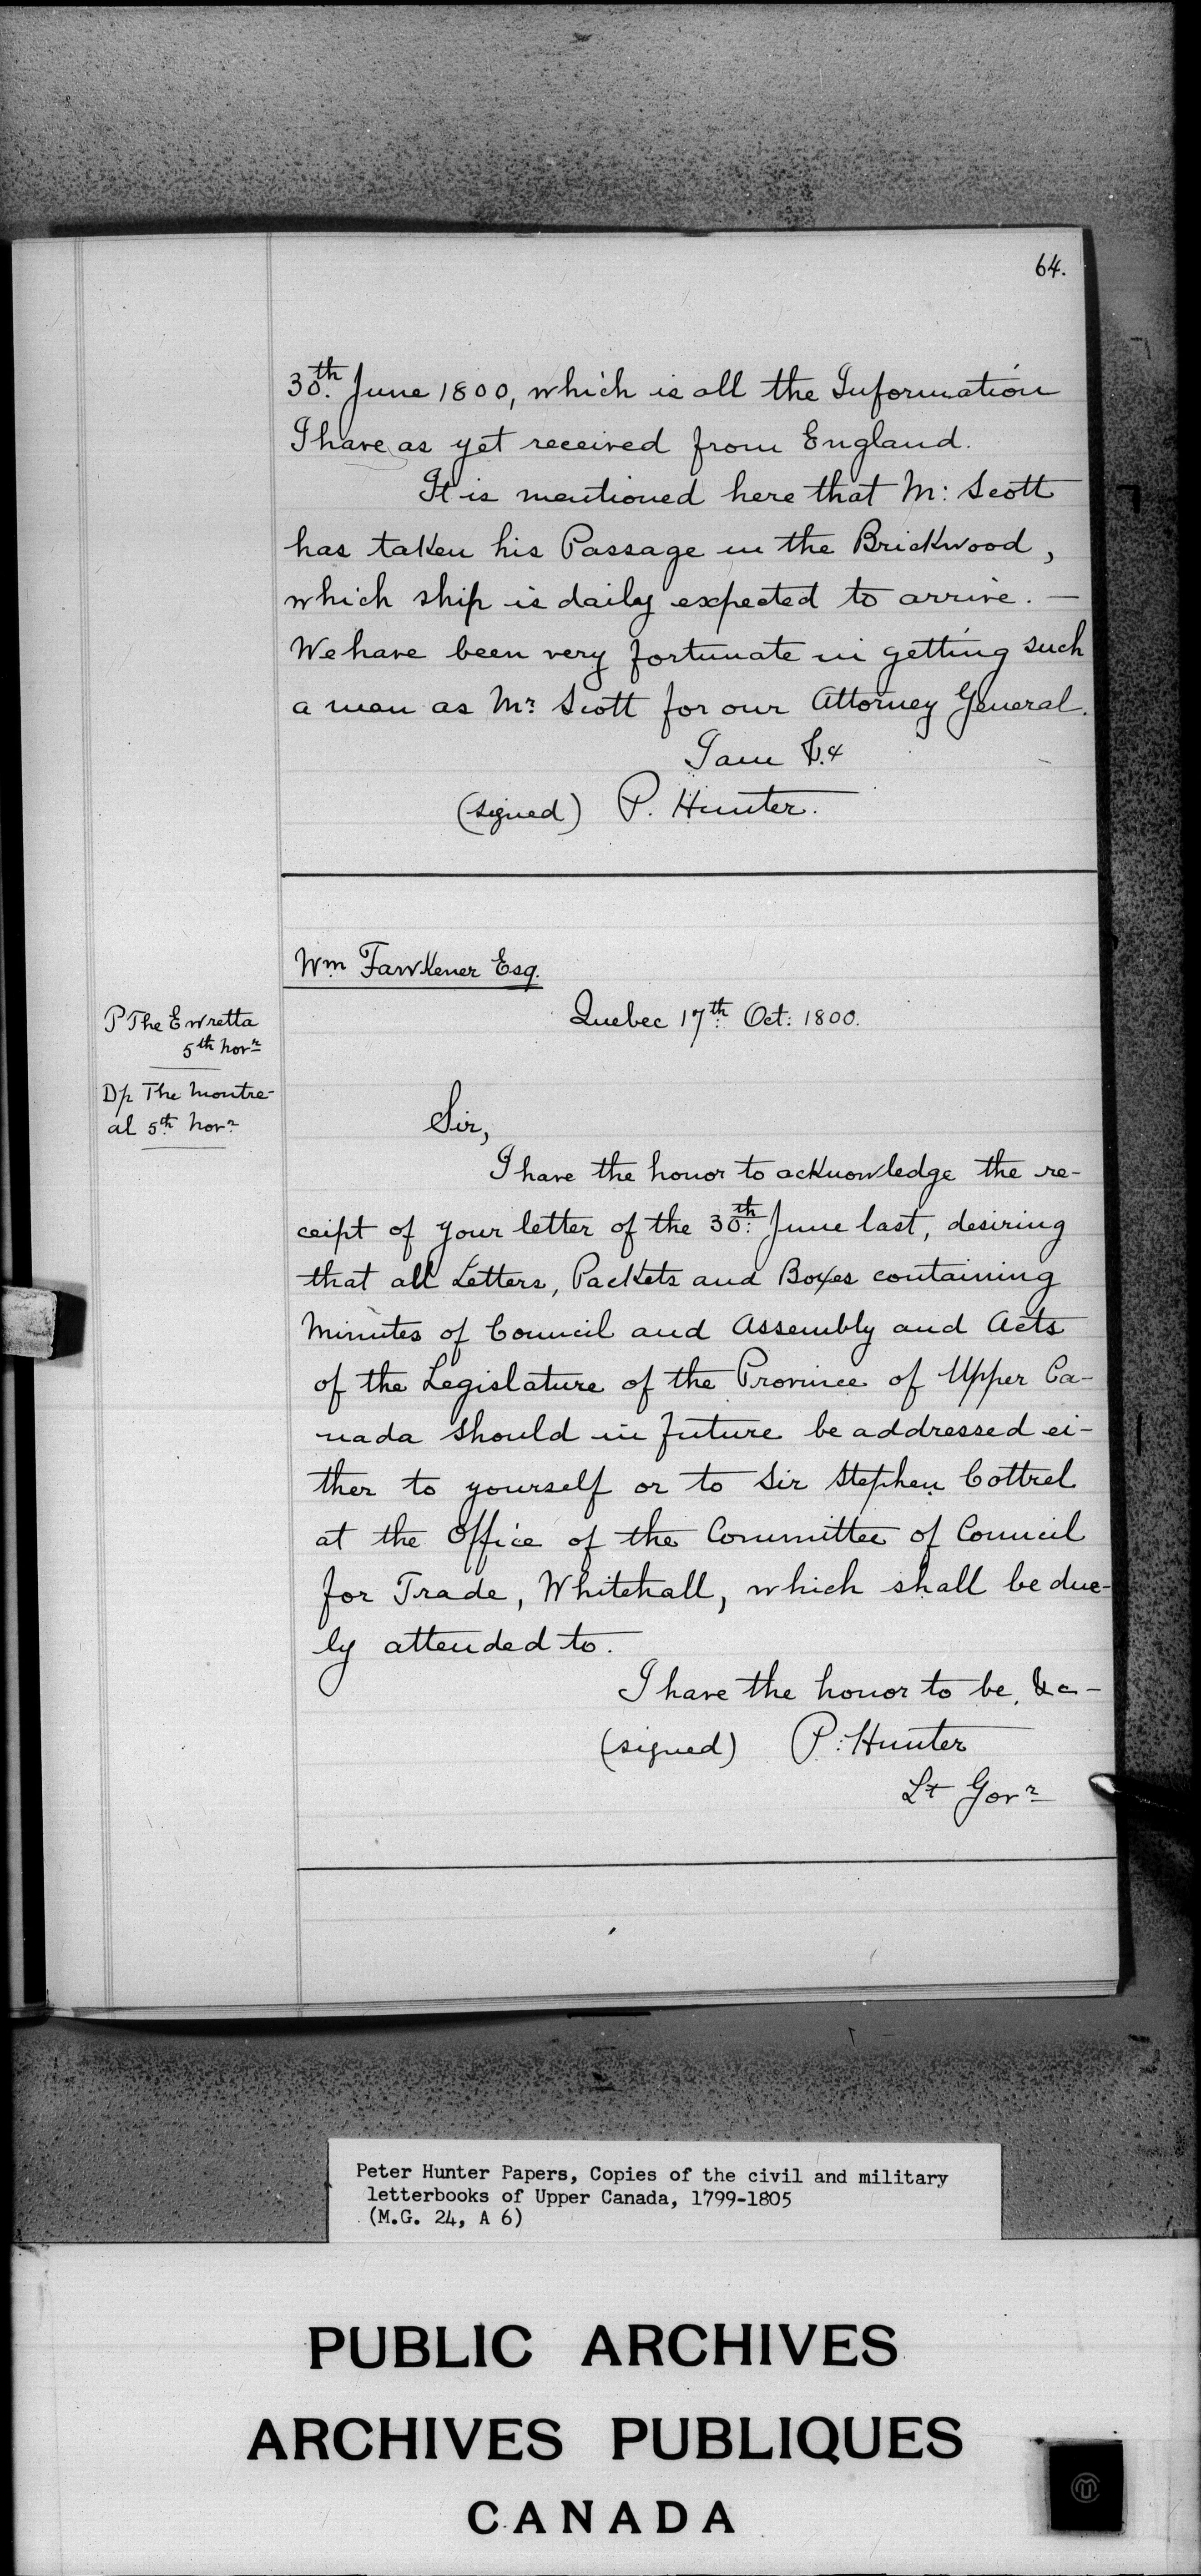 64.
30th. June 1800, which is all the Information
I have as yet received from England.
It is mentioned here that M: Scott
has taken his Passage in the Brickwood,
which ship is daily expected to arrive. —
We have been very fortunate in getting such
a man as Mr Scott for our Attorney General.
I am &.&
(signed) P. Hunter.
Wm Fawkener Esq.
Quebec 17th Oct: 1800.
P The Ewretta
5th Novr
Dp The Montre-
al 5th Novr
Sir,
I have the honor to acknowledge the re-
ceipt of your letter of the 30th: June last, desiring
that all Letters, Packets and Boxes containing
Minutes of Council and Assembly and Acts
of the Legislature of the Province of Upper Ca-
nada should in future be addressed ei-
ther to yourself or to Sir Stephen Cottrel
at the Office of the Committee of Council
for Trade, Whitehall, which shall be due-
ly attended to.
I have the honor to be, &c -
(signed) P. Hunter
Lt Govr
Peter Hunter Papers, Copies of the civil and military
letterbooks of Upper Canada, 1799-1805
(M.G. 24, A 6)
PUBLIC ARCHIVES
ARCHIVES PUBLIQUES
CANADA